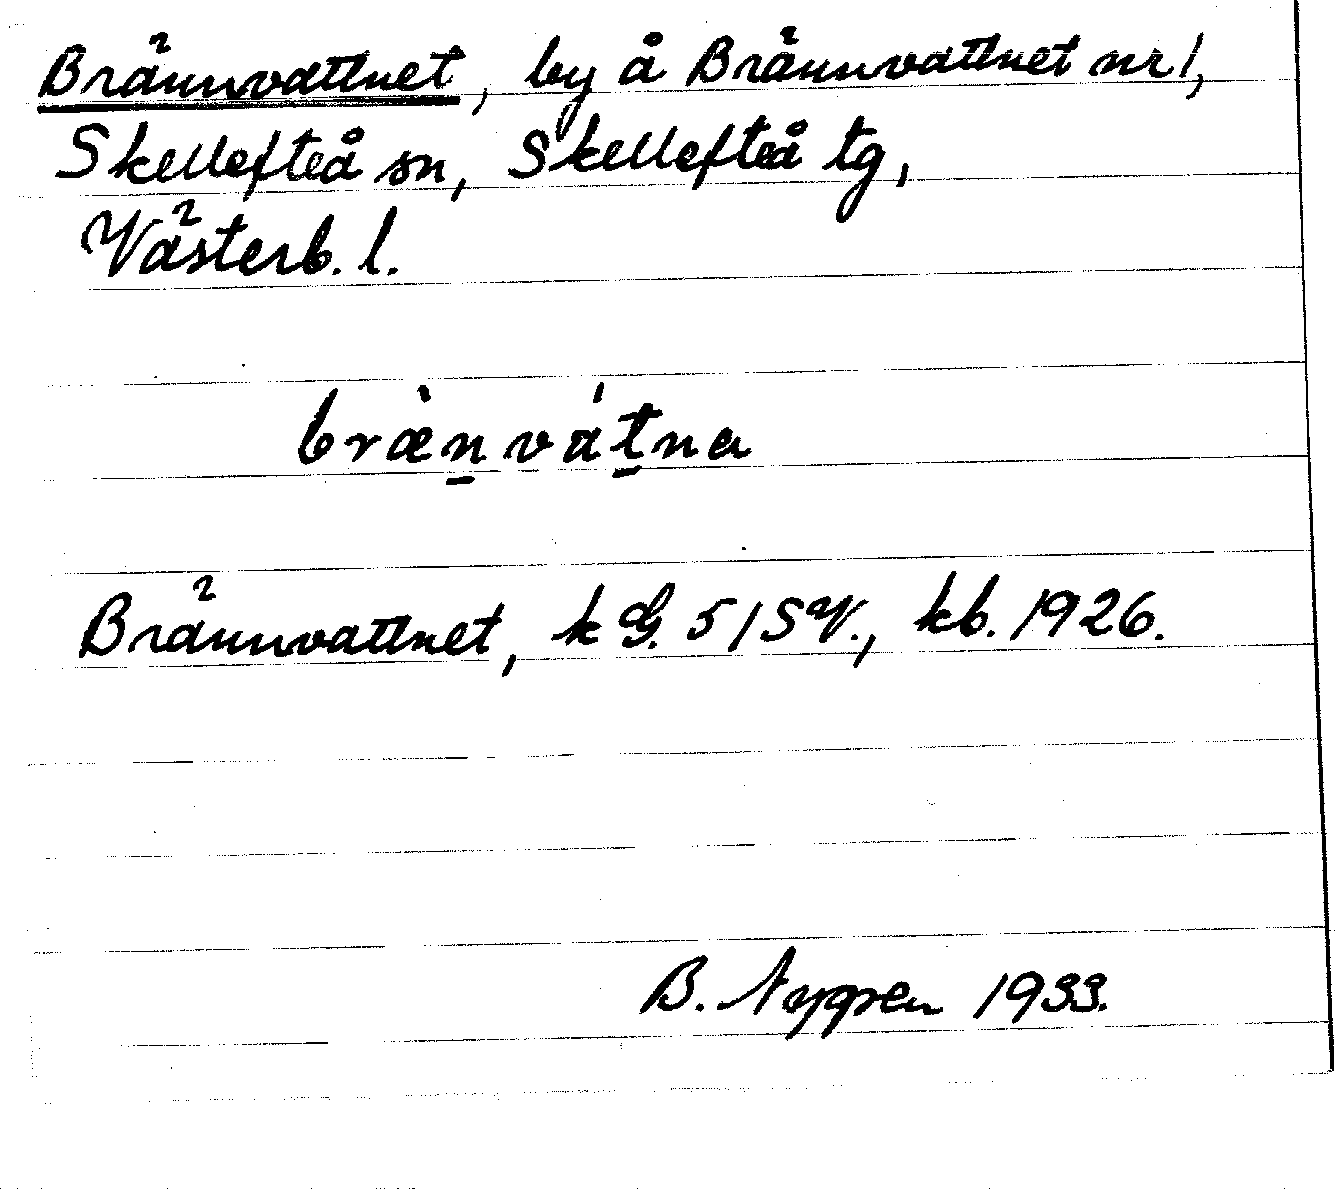 Brännvattnet, by å Brännvattnet nr 1,
Skellefteå sn, Skellefteå tg,
Västerb. l.
bræ̀n̠vát̠na
Brännvattnet, k G. 51SV., kb. 1926.
B. Nygren 1933.